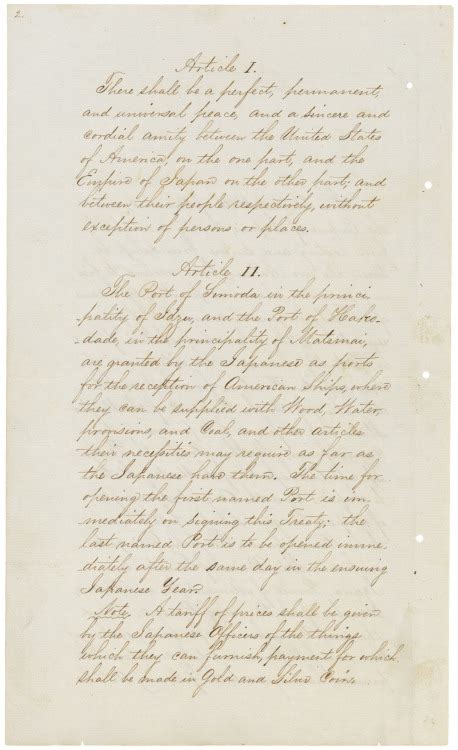 2.
Article I.
There shall be a perfect, permanent,
and universal peace, and a sincere and
cordial amity between the United States
of America, on the one part, and the
Empire of Japan on the other part; and
between their people respectively, without
exception of persons or places.
Article II.
The Port of Simoda in the princi
pality of Idzu, and the Port of Hako-
dade, in the principality of Matsmai,
are granted by the Japanese as ports
for the reception of American Ships, where
they can be supplied with Wood, Water,
provisions, and Coal, and other articles
their necessities may require as far as
the Japanese have them. The time for
opening the first named Port is im-
mediately on signing this Treaty: the
last named Port is to be opened imme
diately after the same day in the ensuing
Japanese Year.
Note. A tariff of prices shall be given
by the Japanese Officers of the things
which they can furnish, payment for which
shall be made in Gold and Silver Coin.